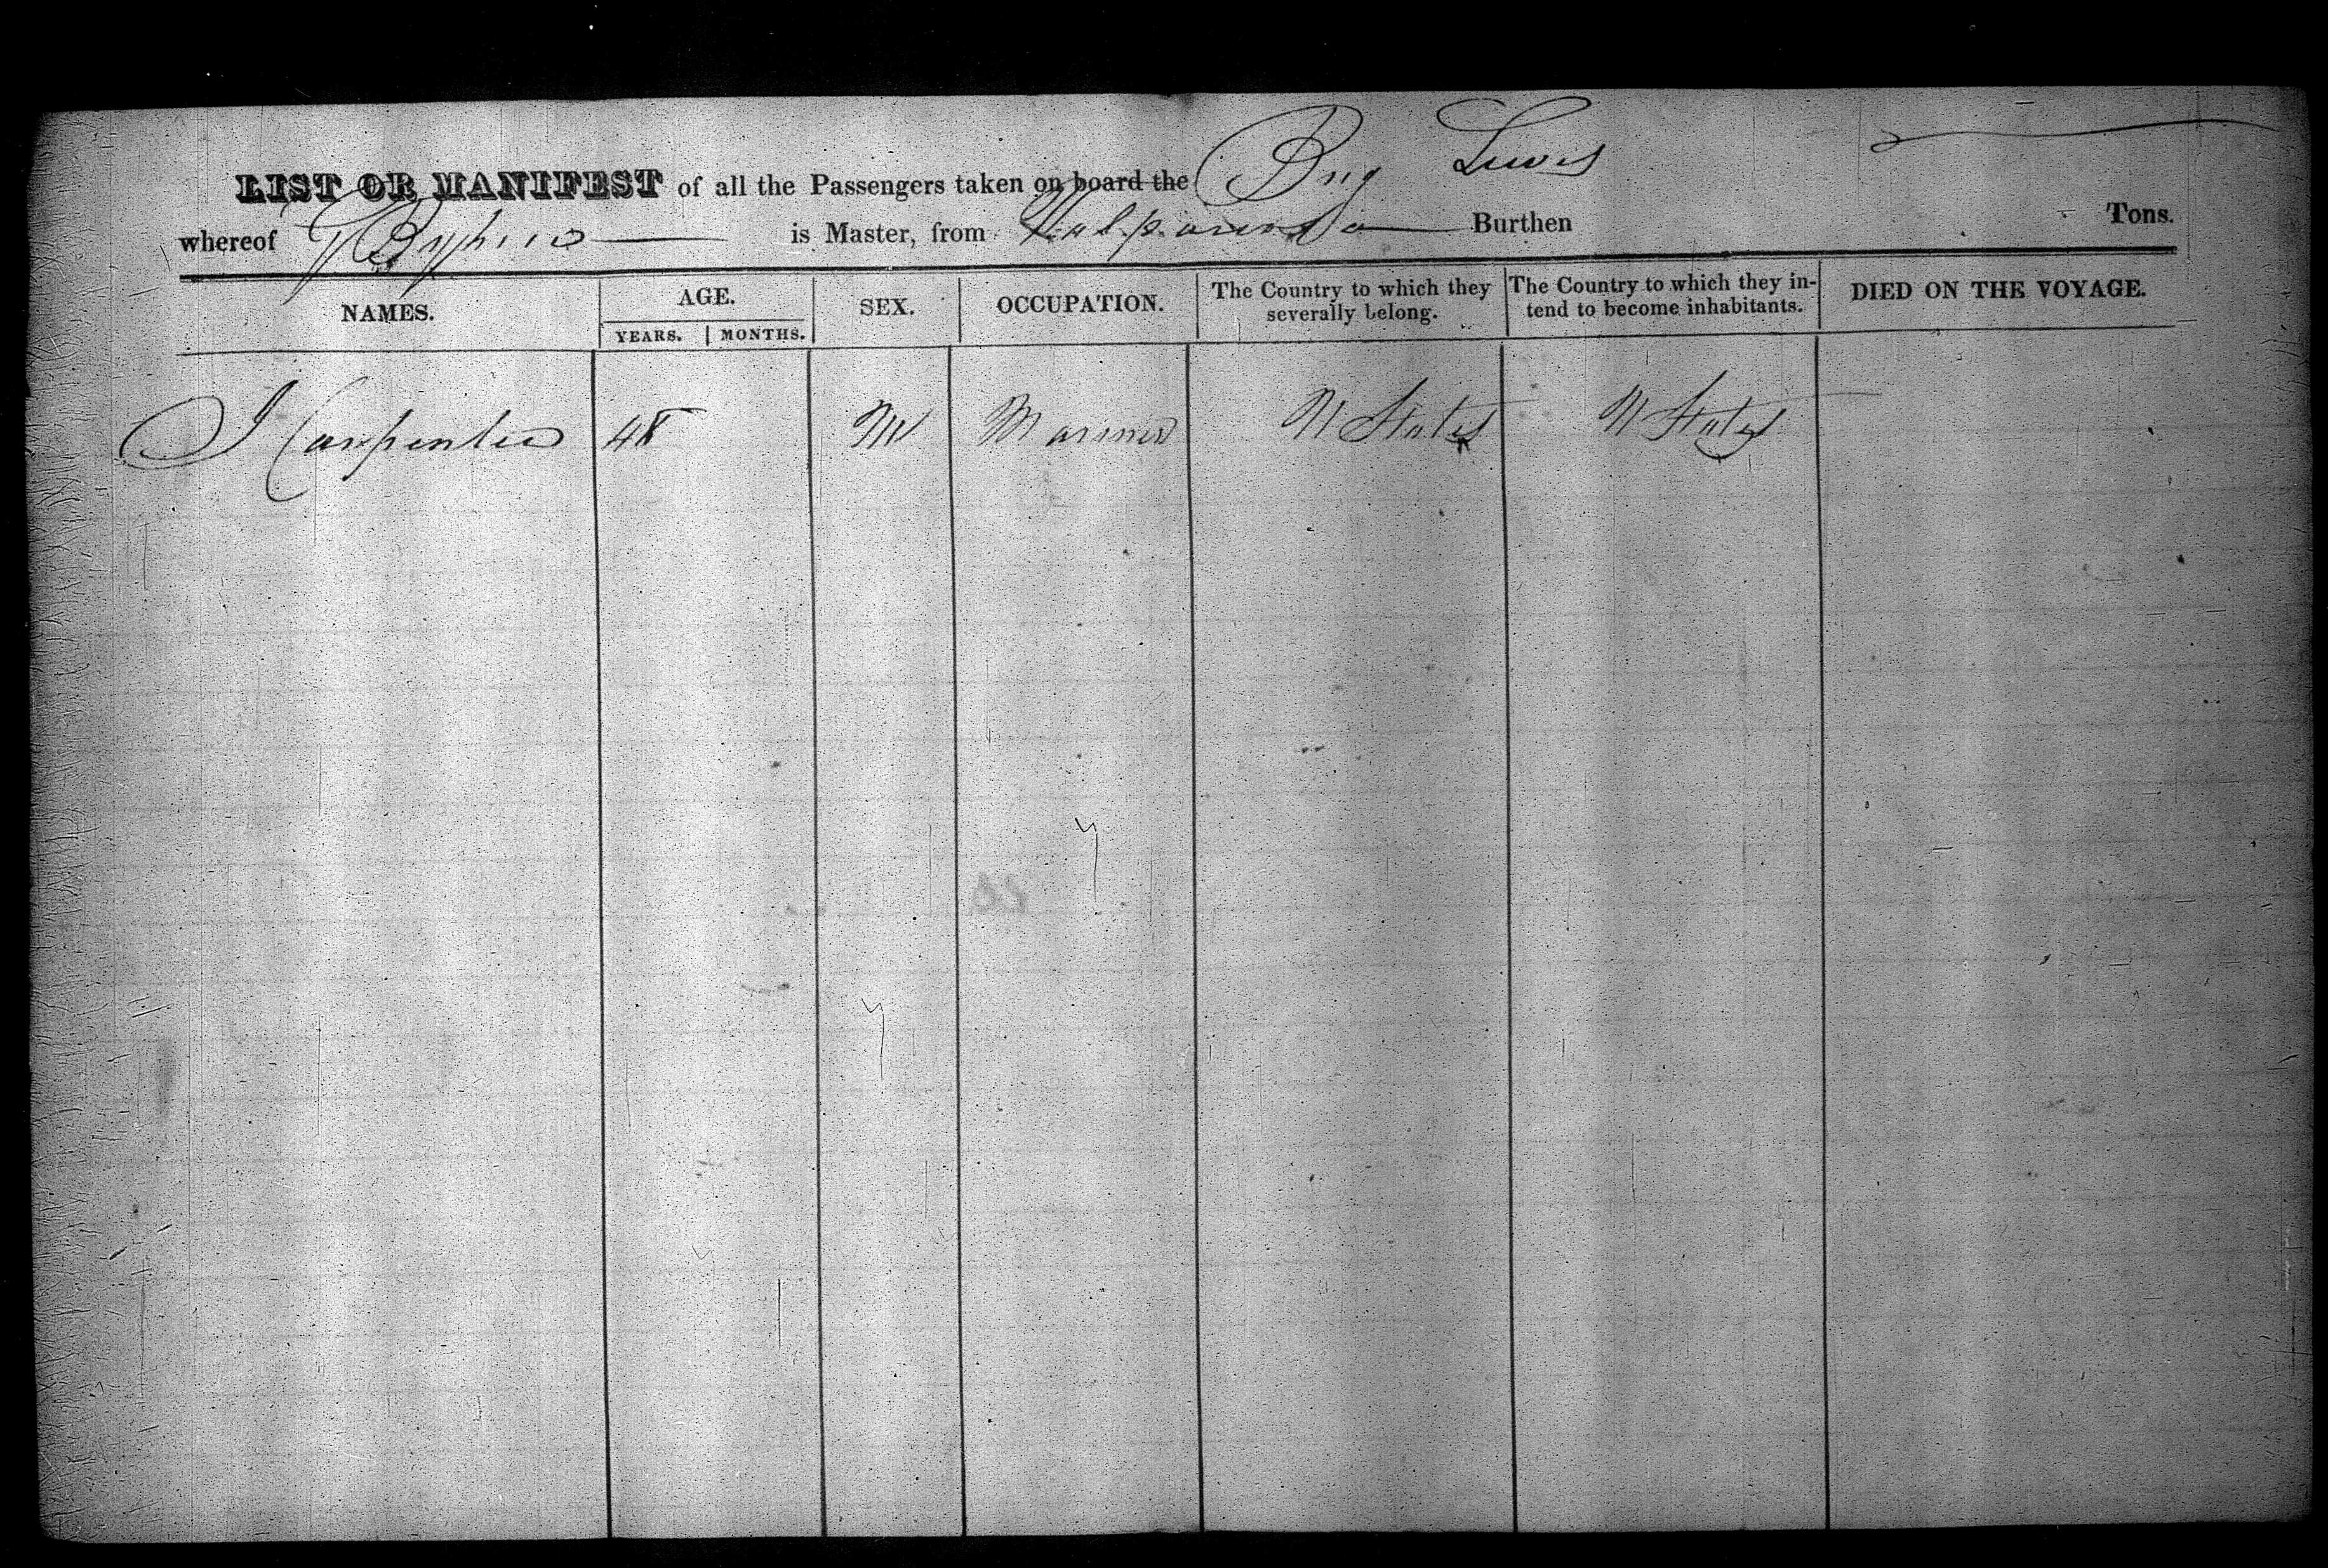 LIST OR MANIFEST of all the Passengers taken on board the Brig Lewis
whereof is Master, from Valparaiso Burthen Tons.
NAMES. AGE. SEX. OCCUPATION. The Country to which they severally belong. The Country to which they in-tend to become inhabitants. DIED ON THE VOYAGE.
YEARS. MONTHS.
J Carpenter 48 M Mariner U States U States